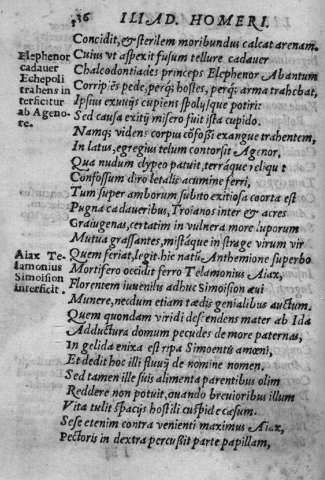 36 ILIAD. HOMERI.
Concidit, & sterilem moribundus calcat arenam.
Cuius vt aspexit fusum tellure cadauer
Chalcodontiades princeps Elephenor Abantum
Corripiẽs pede, perq́; hostes, perq́; arma trahebat,
Ipsius exuuijs cupiens spolijsque potiri:
Sed causa exitij misero fuit ista cupido.
Namq; videns corpus cõfossi exangue trahentem,
In latus, egregius telum contorsit Agenor,
Qua nudum clypeo patuit, terráque reliqu t
Confossum diro letalis acumine ferri,
Tum super amborum subito exitiosa coorta est
Pugna cadaueribus, Troianos inter & acres
Graiugenas, certatim in vulnera more luporum
Mutua grassantes, mistáque in strage virum vir
Quem feriat, legit. hic natũ Anthemione superbo
Mortifero occidit ferro Telamonius Aiax,
Florentem iuuenilis adhuc Simoision æui
Munere, necdum etiam tædis genialibus auctum.
Quem quondam viridi descendens mater ab Ida
Adductura domum pecudes de more paternas,
In gelida enixa est ripa Simoentis amœni,
Et dedit hoc illi fluuij de nomine nomen.
Sed tamen ille suis alimenta parentibus olim
Reddere non potuit, quando breuioribus illum
Vita tulit spacijs hostili cuspide cæsum.
Sese etenim contra venienti maximus Aiax,
Pectoris in dextra percussit parte papillam,
Elephenor
cadauer
Echepoli
trahens in
terficitur
ab Ageno-
re.
Aiax Te-
lamonius
Simoision
interficit.